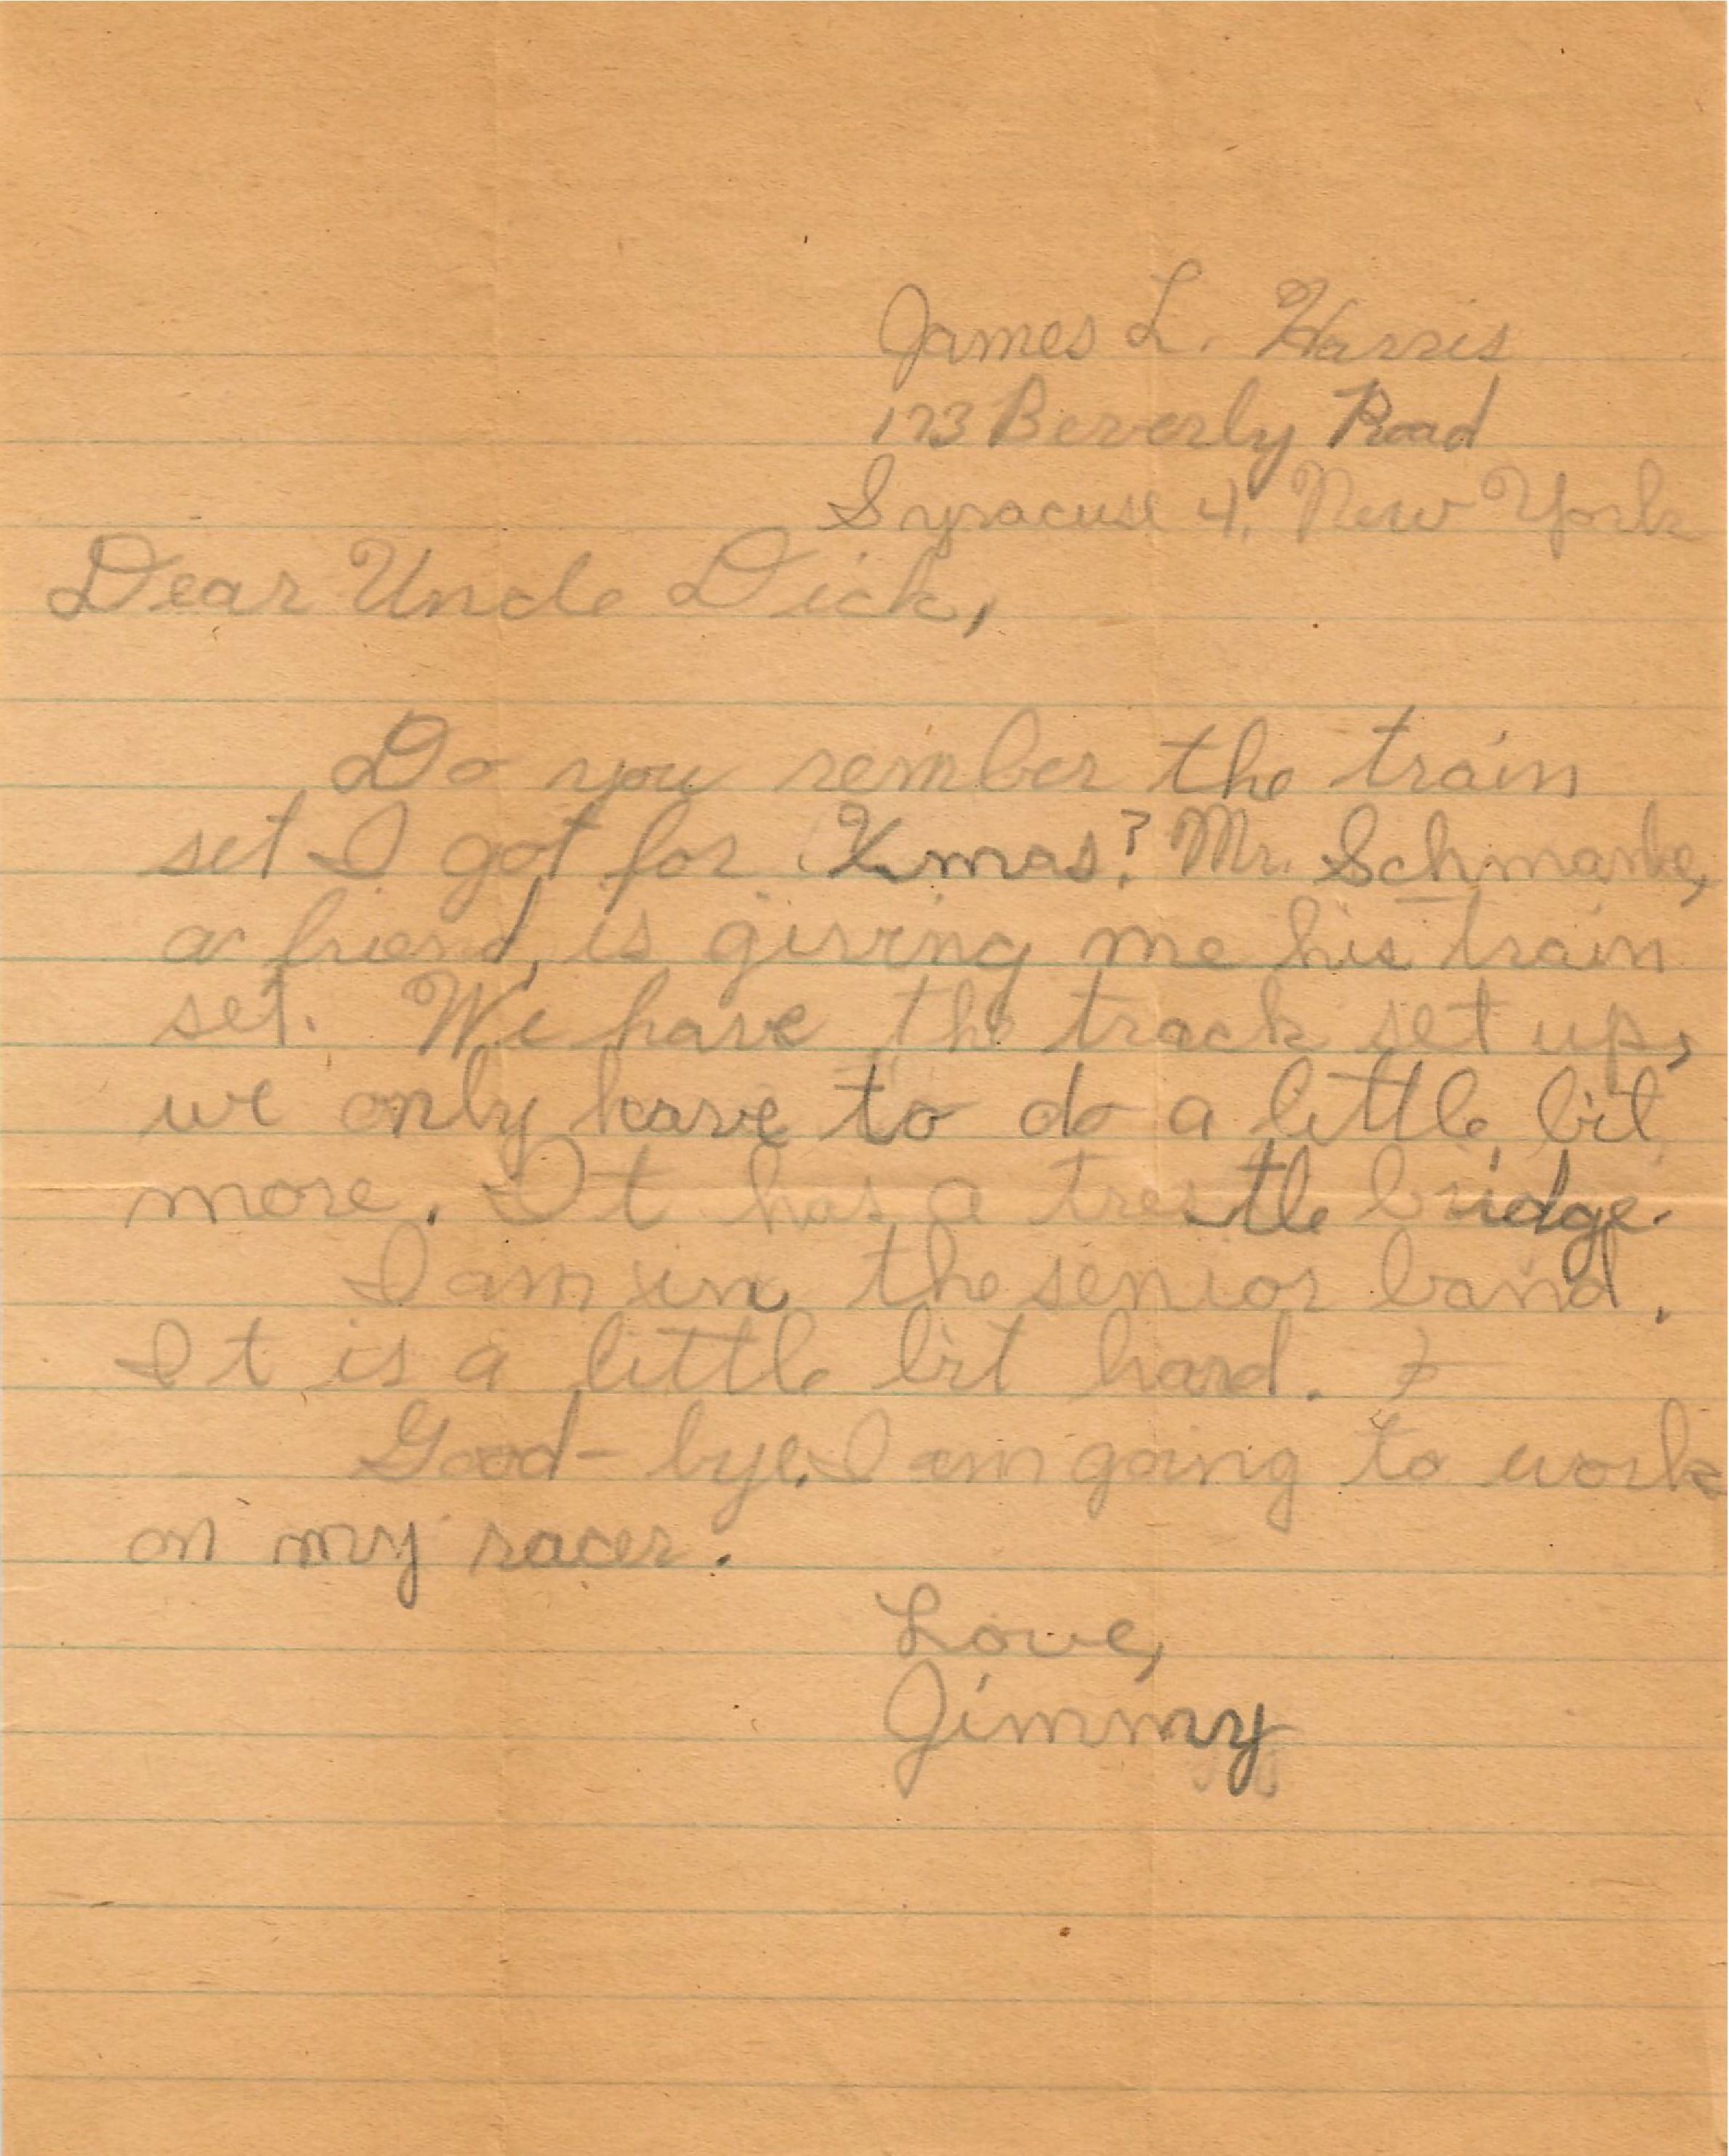 James L. Harris
173 Beverly Road
Syracuse 4, New York
Dear Uncle Dick,
Do you rember the train
set I got for Xmas? Mr. Schmanke,
a friend, is giving me his train
set. We have the track set up,
we only have to do a little bit
more. It has a trestle bridge.
I am in the senior band.
It is a little bit hard.
Good-bye. I am going to work
on my racer.
Love,
Jimmy